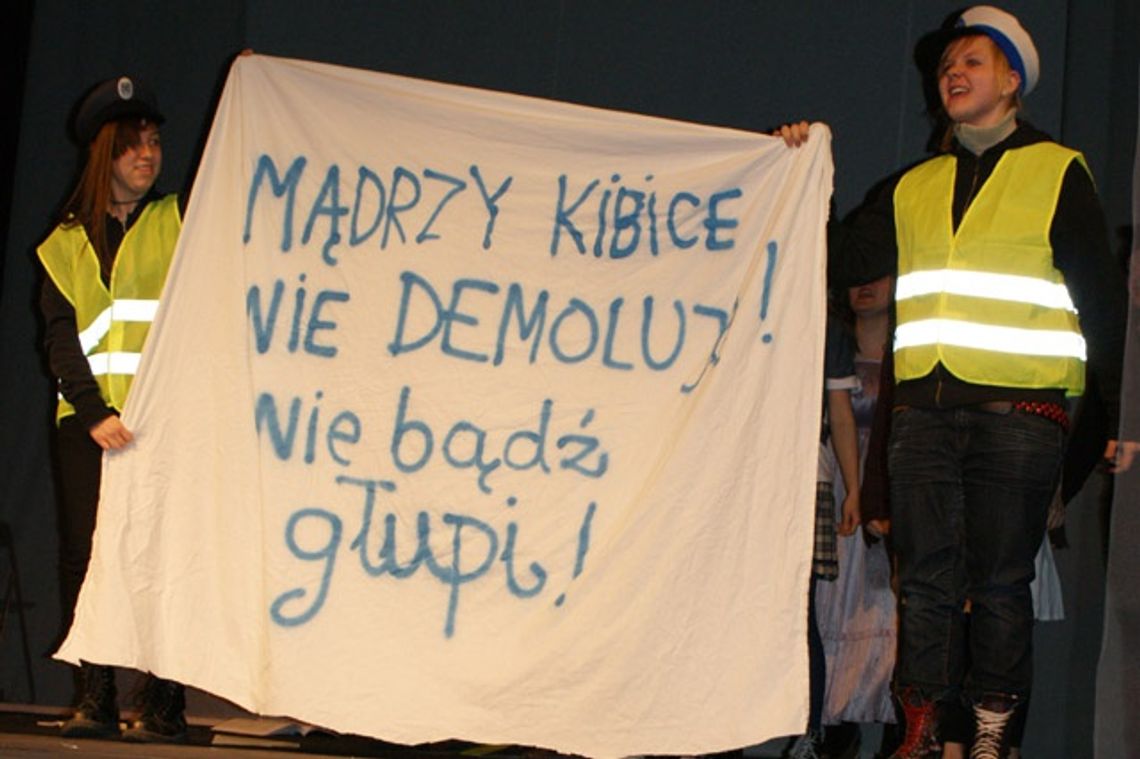 MĄDRZY KIBICE
NIE DEMOLUJ!
Nie bądź
głupi!